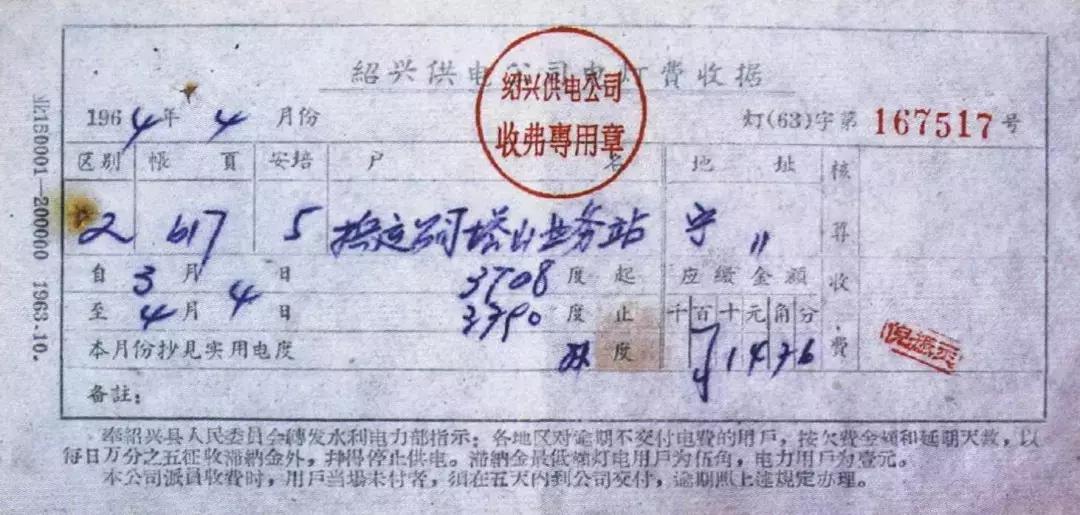 紹兴供电公司电灯費收据
紹兴供电公司
收弗專用章
1964年4月份
灯(63)字第 167517 号
区别 帳頁 安培 户名 地址 核算收費
2 617 5 塔山业务站
自3月4日 3708度起 应缴金額
至4月4日 3790度止 千百十元角分
本月份抄見实用电度 82度 1476
备註：
业150001—200000 1963.10.
奉紹兴县人民委員会轉发水利电力部指示：各地区对逾期不交付电費的用戶，按欠費金額和延期天数，以
每日万分之五征收滯納金外，并得停止供电。滯納金最低額灯电用戶为伍角，电力用戶为壹元。
本公司派員收費时，用戶当場未付者，須在五天內到公司交付，逾期照上述規定办理。